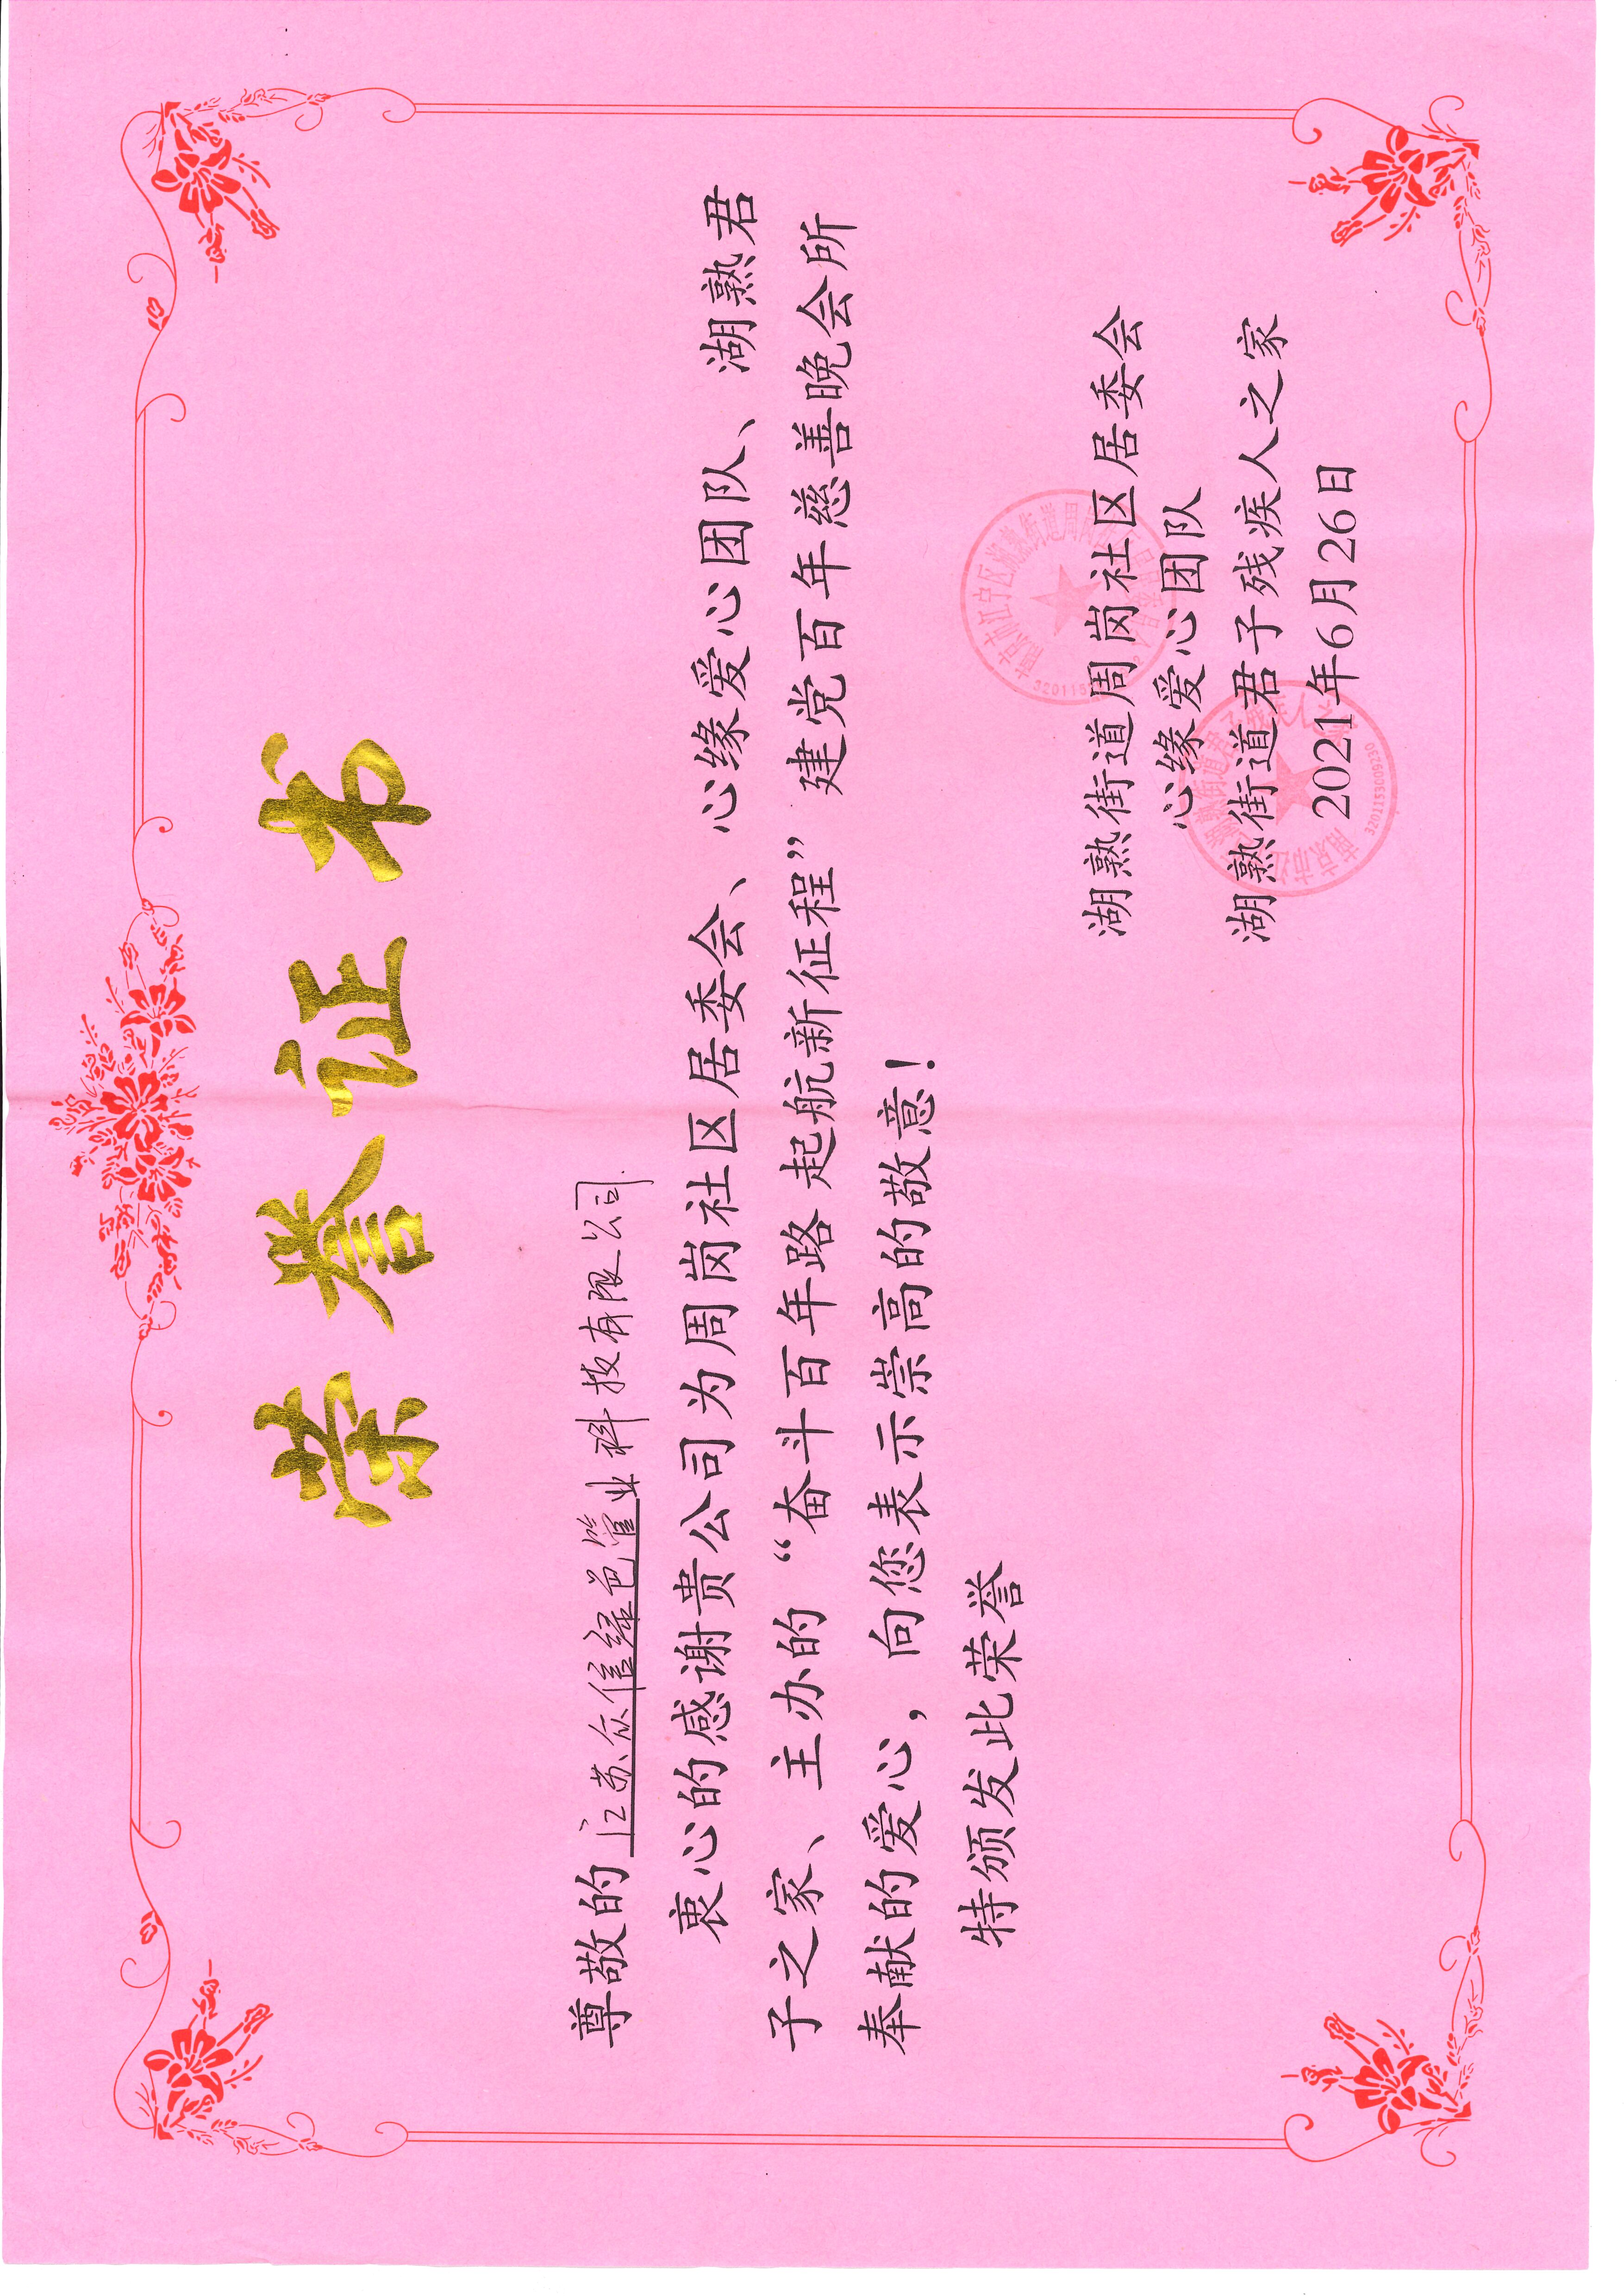 荣誉证书
尊敬的 江苏众信绿色管业科技有限公司
衷心的感谢贵公司为周岗社区居委会、心缘爱心团队、湖熟君
子之家、主办的“奋斗百年路 起航新征程”建党百年慈善晚会所
奉献的爱心，向您表示崇高的敬意！
特颁发此荣誉
南京市江宁区湖熟街道周
湖熟街道周岗社区居委会
心缘爱心团队
湖熟街道君子残疾人之家
2021年6月26日
3201153009230